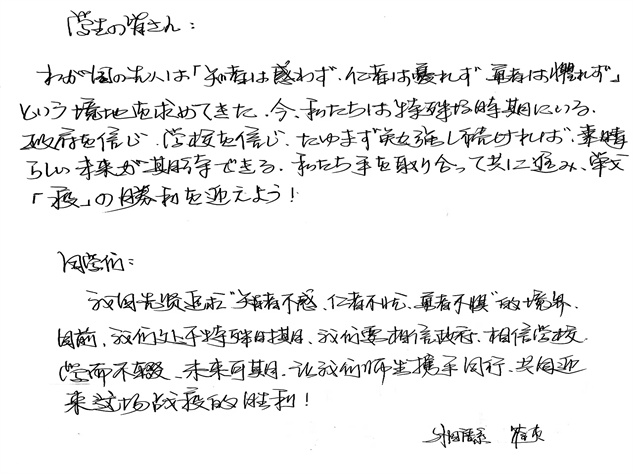 学生の皆さん：
わが国の先人は「知者は惑わず、仁者は憂れず、勇者は懼れず」
という境地を求めてきた。今、私たちは特殊な時期にいる。
政府を信じ、学校を信じ、たゆまず勉強し続ければ、素晴
らしい未来が期待できる。私たち手を取り合って共に進み、
「疫」の勝利を迎えよう！
同学们：
我国先贤追求“知者不惑、仁者不忧、勇者不惧”的境界。
目前，我们处于特殊时期，我们要相信政府、相信学校，
学而不辍、未来可期。让我们师生携手同行，共同迎
来这场战疫的胜利！
外国语系